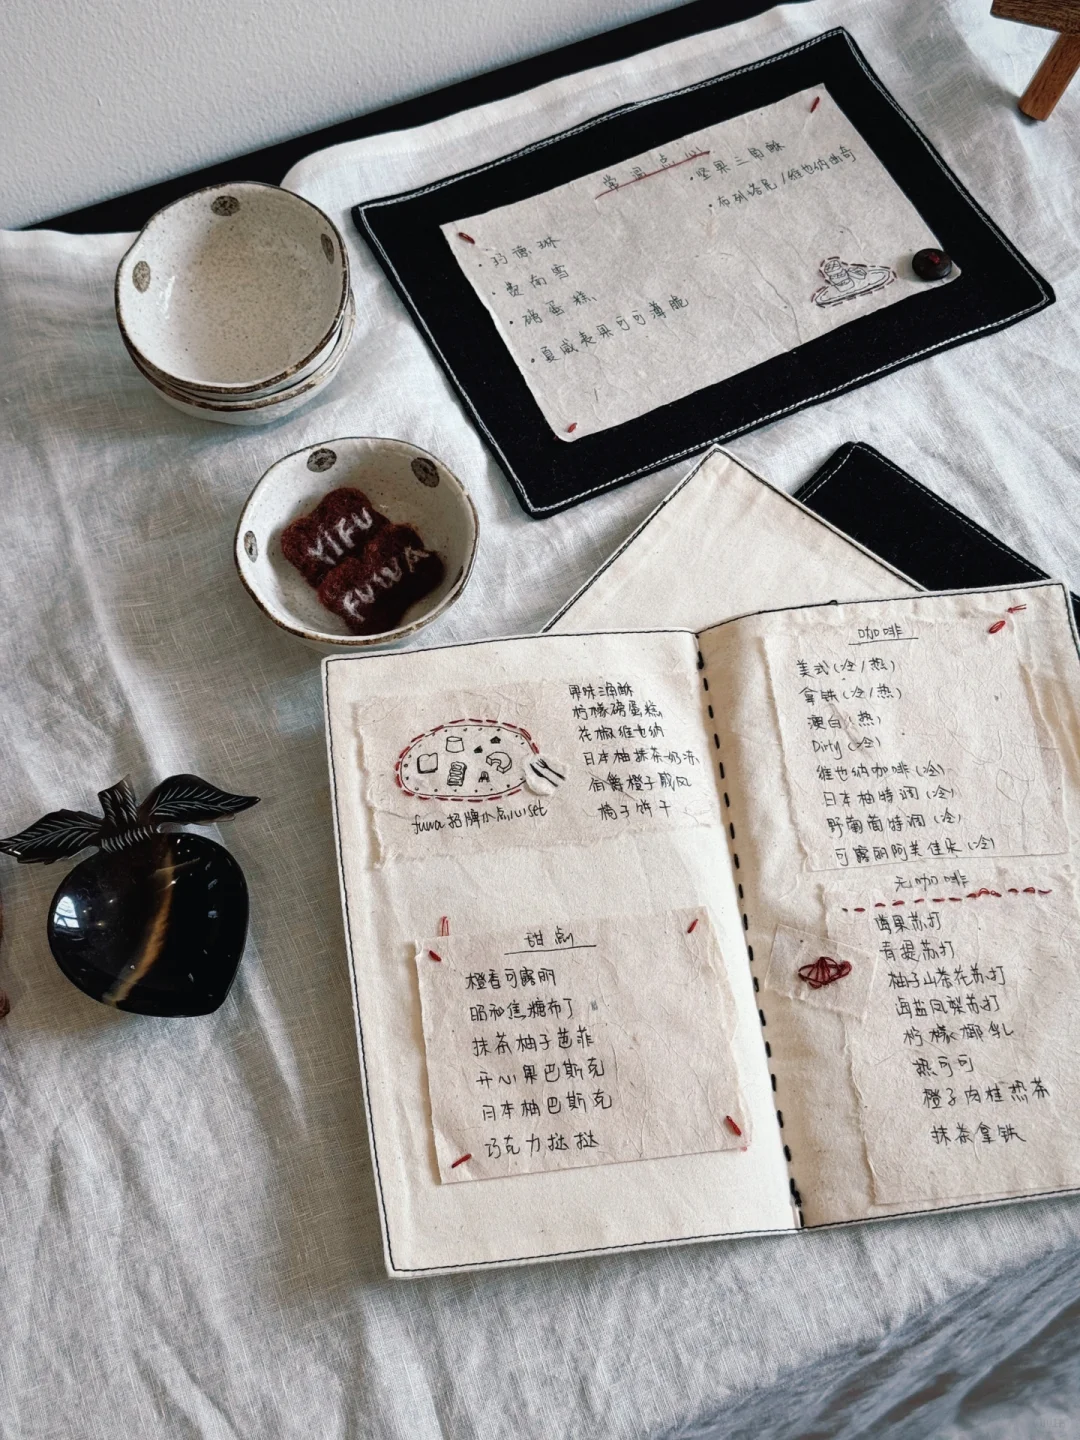 常温点心
坚果三角酥
布列塔尼/维也纳曲奇
玛德琳
费南雪
磅蛋糕
夏威夷果可可薄脆
YIFU
FUWA
果味三角酥
柠檬磅蛋糕
花椒维也纳
日本柚抹茶奶冻
伯爵橙子戚风
梅子饼干
fuwa招牌小点心set
甜点
橙香可露丽
昭和焦糖布丁
抹茶柚子芭菲
开心果巴斯克
日本柚巴斯克
巧克力挞挞
咖啡
美式(冷/热)
拿铁(冷/热)
澳白(热)
Dirty(冷)
维也纳咖啡(冷)
日本柚特调(冷)
野葡萄特调(冷)
可露丽阿芙佳朵(冷)
无咖啡
莓果苏打
青提苏打
柚子山茶花苏打
卤盐凤梨苏打
柠檬椰乳
热可可
橙子肉桂热茶
抹茶拿铁